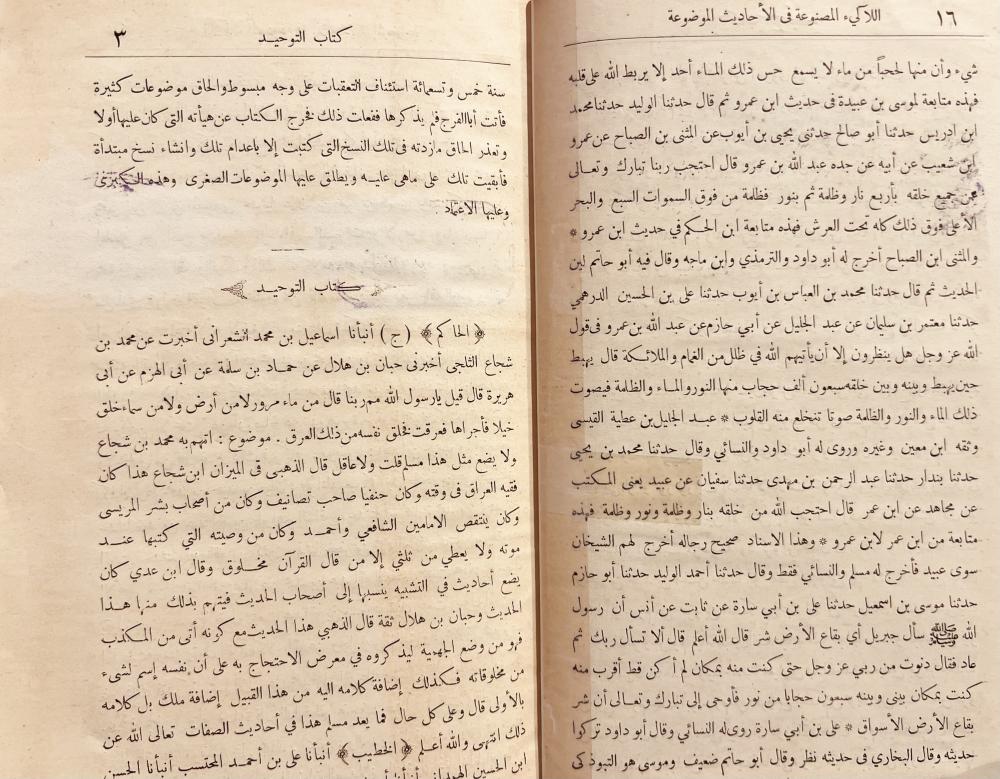 ١٦
اللآلىء المصنوعة فى الأحاديث الموضوعة
شيء وأن منها لحجباً من ماء لا يسمع حس ذلك المـاء أحد إلا يربط الله على قلبه
فهذه متابعة لموسى بن عبيدة فى حديث ابن عمرو ثم قال حدثنا الوليد حدثنا محمد
ابن ادريس حدثنا أبو صالح حدثني يحيى بن أيوب عن المثنى بن الصباح عن عمرو
ابن شعيب عن أبيه عن جده عبد الله بن عمرو قال احتجب ربنا تبارك وتعـالى
عن جميع خلقه بأربع نار وظلمة ثم بنور فظلمة من فوق السموات السبع والبحر
الأعلى فوق ذلك كله تحت العرش فهذه متابعة ابن الحكم في حديث ابن عمرو *
والمثنى ابن الصباح أخرج له أبو داود والترمذي وابن ماجه وقال فيه أبو حاتم لين
الحديث ثم قال حدثنا محمد بن العباس بن أيوب حدثنا على بن الحسين الدرهمي
حدثنا معتمر بن سليمان عن عبد الجليل عن أبي حازم عن عبد الله بن عمرو فى قول
الله عز وجل هل ينظرون إلا أن يأتيهم الله في ظلل من الغمام والملائكة قال يهبط
حين يهبط وبينه وبين خلقه سبعون ألف حجاب منها النور والماء والظلمة فيصوت
ذلك الماء والنور والظلمة صوتا تنخلع منه القلوب * عبـد الجليل بن عطية القيسى
وثقه ابن معين وغيره وروى له أبو داود والنسائي وقال حدثنا محمد بن يحيى
حدثنا بندار حدثنا عبد الرحمن بن مهدى حدثنا سفيان عن عبيد يعنى المكتب
عن مجاهد عن ابن عمر قال احتجب الله من خلقه بنار وظلمة ونور وظلمة فهذه
متابعة من ابن عمر لابن عمرو * وهذا الاسناد صحيح رجاله أخرج لهم الشيخان
سوى عبيد فأخرج له مسلم والنسائي فقط وقال حدثنا أحمد الوليد حدثنا أبو حازم
حدثنا موسى بن اسمعيل حدثنا على بن أبي سارة عن ثابت عن أنس أن رسول
الله ﷺ سأل جبريل أي بقاع الأرض شر قال الله أعلم قال ألا تسأل ربك ثم
عاد فقال دنوت من ربي عز وجل حتى كنت منه بمكان لم أكن قط أقرب منه
كنت بمكان بينى وبينه سبعون حجابا من نور فأوحى إلى تبارك وتعـالى أن شر
بقاع الأرض الأسواق * على بن أبي سارة روى له النسائي وقال أبو داود تركوا
حديثه وقال البخارى في حديثه نظر وقال أبو حاتم ضعيف وموسى هو التبوذكى
كتاب التوحيـد
٣
سنة خمس وتسعمائة استئناف التعقبات على وجه مبسوط والحاق موضوعات كثيرة
فأتت أبا الفرج فلم يذكرها ففعلت ذلك فخرج الكتاب عن هيأته التى كان عليها أولا
وتعذر الحاق مازدته فى تلك النسخ التى كتبت إلا باعدام تلك وانشاء نسخ مبتدأة
فأبقيت تلك على ماهى عليـه ويطلق عليها الموضوعات الصغرى وهذه الكبرى
وعليها الاعتماد .
كتاب التوحيـد
﴿ الحاكم ﴾ (ج) أنبأنا اسماعيل بن محمد الشعرانى أخبرت عن محمد بن
شجاع الثلجى أخبرنى حبان بن هلال عن حمـاد بن سلمة عن أبى المهزم عن أبى
هريرة قال قيل يارسول الله مم ربنا قال من ماء مرور لا من أرض ولا من سماء خلق
خيلا فأجراها فعرقت فخلق نفسه من ذلك العرق . موضوع : اتهم به محمد بن شجاع
ولا يضع مثل هذا مسلم قلت ولا عاقل قال الذهبى فى الميزان ابن شجاع هذا كان
فقيه العراق فى وقته وكان حنفيا صاحب تصانيف وكان من أصحاب بشر المريسى
وكان ينتقص الامامين الشافعي وأحمـد وكان من وصيته التي كتبها عنـد
موته ولا يعطي من ثلثي إلا من قال القرآن مخـلوق وقال ابن عدي كان
يضع أحاديث في التشبيه ينسبها إلى أصحاب الحديث فيتهم بذلك منها هـذا
الحديث وحبان بن هلال ثقة قال الذهبي هذا الحديث مع كونه أتى من المكذب
فهو من وضع الجهمية ليذكروه في معرض الاحتجاج به على أن نفسه إسم لشىء
من مخلوقاته فكذلك إضافة كلامه اليه من هذا القبيل إضافة ملك بل كلامه
بالأولى قال وعلى كل حال فما يعد مسلم هذا في أحاديث الصفات تعالى الله عن
ذلك انتهى والله أعلم ﴿ الخطيب ﴾ أنبأنا على بن أحمـد المحتسب أنبأنا الحسن
ابن الحسين الهمداني